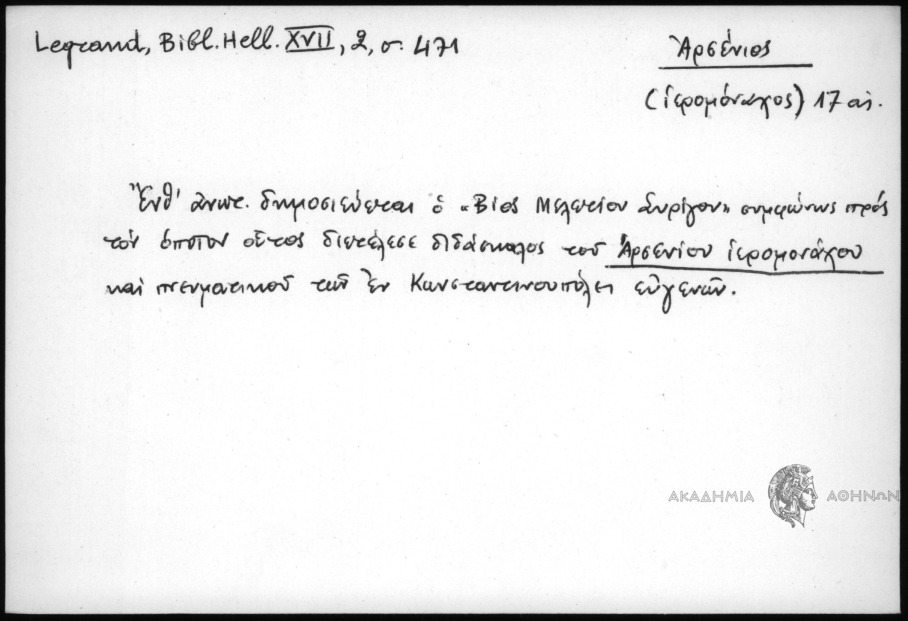 Legrand, Bibl. Hell. XVII, 2, σ. 471
Ἀρσένιος
(ἱερομόναχος) 17 αἰ.
Ἔνθ' ἀνωτ. δημοσιεύεται ὁ «Βίος Μελετίου Συρίγου» συμφώνως πρὸς
τὸν ὁποῖον οὗτος διετέλεσε διδάσκαλος τοῦ Ἀρσενίου ἱερομονάχου
καὶ πνευματικοῦ τῶν ἐν Κωνσταντινουπόλει εὐγενῶν.
ΑΚΑΔΗΜΙΑ ΑΘΗΝΩΝ